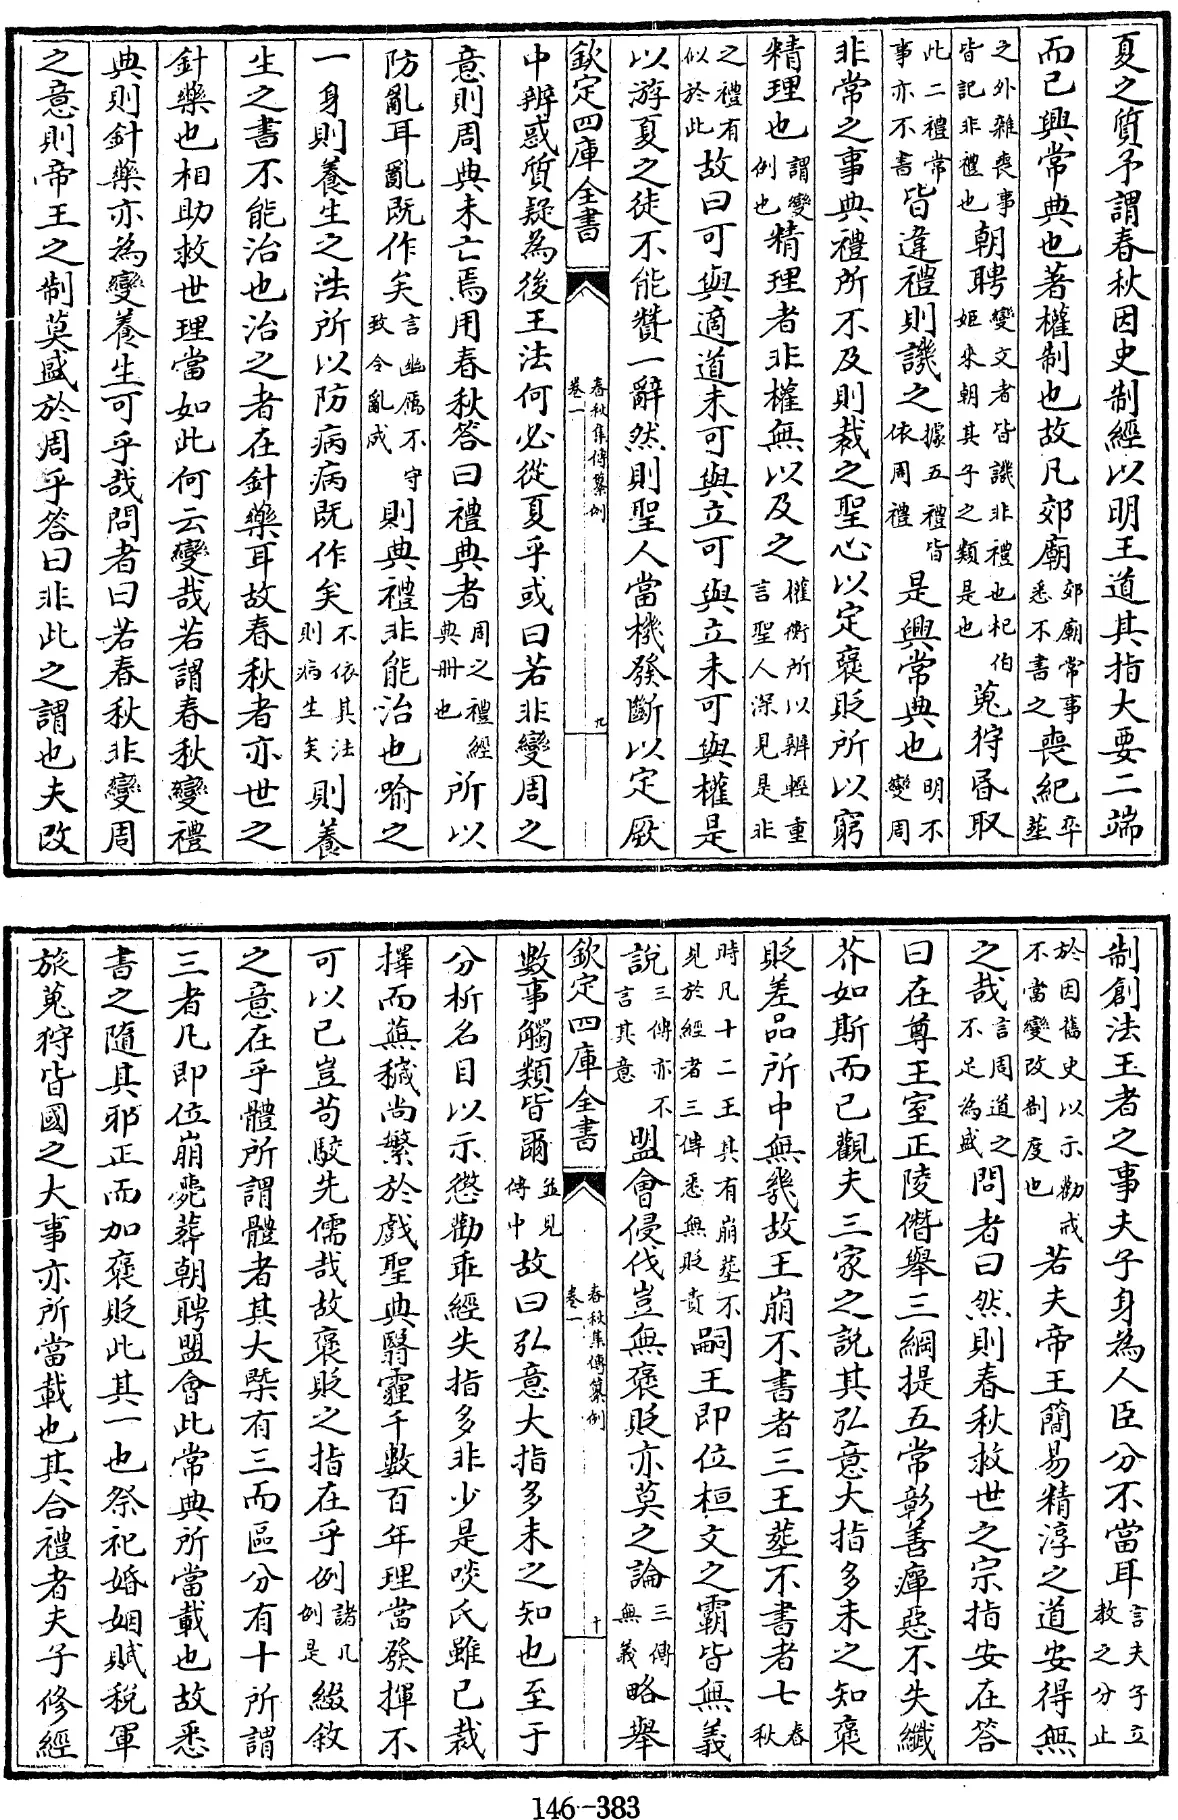 夏之質予謂春秋因史制經以明王道其指大要二端
而已興常典也著權制也故凡郊廟郊廟常事悉不書之喪紀卒葬
之外雜喪事皆記非禮也朝聘變文者皆譏非禮也杞伯姬來朝其子之類是也蒐狩昏取
此二禮常事亦不書皆違禮則譏之據五禮皆依周禮是興常典也明不變周
非常之事典禮所不及則裁之聖心以定褒貶所以窮
精理也謂變例也精理者非權無以及之權衡所以辨輕重言聖人深見是非
之禮有似於此故曰可與適道未可與立可與立未可與權是
以游夏之徒不能贊一辭然則聖人當機發斷以定厥
欽定四庫全書 春秋集傳纂例卷一 九
中辨惑質疑為後王法何必從夏乎或曰若非變周之
意則周典未亡焉用春秋答曰禮典者周之禮經典冊也所以
防亂耳亂既作矣言幽厲不守致令亂成則典禮非能治也喻之
一身則養生之法所以防病病既作矣不依其法則病生矣則養
生之書不能治也治之者在針藥耳故春秋者亦世之
針藥也相助救世理當如此何云變哉若謂春秋變禮
典則針藥亦為變養生可乎哉問者曰若春秋非變周
之意則帝王之制莫盛於周乎答曰非此之謂也夫改
制創法王者之事夫子身為人臣分不當耳言夫子立教之分止
於因舊史以示勸戒不當變改制度也若夫帝王簡易精淳之道安得無
之哉言周道之不足為盛問者曰然則春秋救世之宗指安在答
曰在尊王室正陵僭舉三綱提五常彰善癉惡不失纖
芥如斯而已觀夫三家之說其弘意大指多未之知褒
貶差品所中無幾故王崩不書者三王葬不書者七春秋
時凡十二王其有崩葬不見於經者三傳悉無貶責嗣王即位桓文之霸皆無義
說三傳亦不言其意盟會侵伐豈無褒貶亦莫之論三傳無義略舉
欽定四庫全書 春秋集傳纂例卷一 十
數事觸類皆爾並見傳中故曰弘意大指多未之知也至于
分析名目以示懲勸乖經失指多非少是啖氏雖已裁
擇而蕪穢尚繁於戲聖典翳霾千數百年理當發揮不
可以已豈苟駮先儒哉故褒貶之指在乎例諸凡例是綴敘
之意在乎體所謂體者其大槩有三而區分有十所謂
三者凡即位崩薨葬朝聘盟會此常典所當載也故悉
書之隨其邪正而加褒貶此其一也祭祀婚姻賦稅軍
旅蒐狩皆國之大事亦所當載也其合禮者夫子修經
146-383